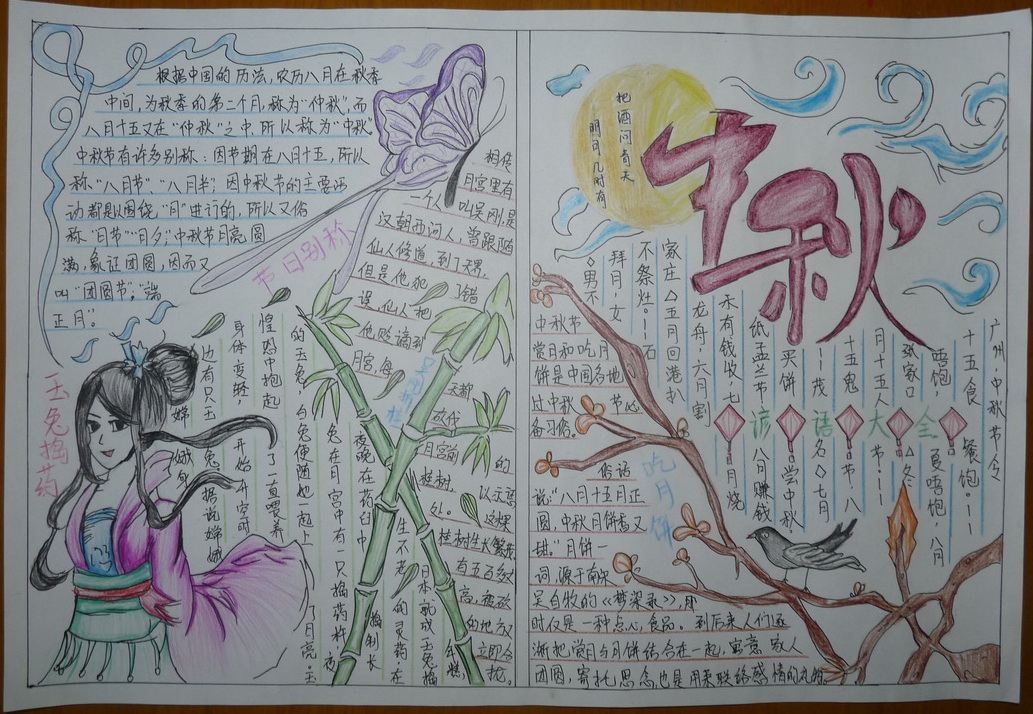 根据中国的历法,农历八月在秋季
中间,为秋季的第二个月,称为“仲秋”,而
八月十五又在“仲秋”之中,所以称为“中秋”
中秋节有许多别称:因节期在八月十五,所以
称“八月节”、“八月半”;因中秋节的主要活
动都是以围绕“月”进行的,所以又俗
称“月节”“月夕”;中秋节月亮圆
满,象征团圆,因而又
叫“团圆节”。“端
正月”。
节日别称
相传
月宫里有
一个人 叫吴刚,是
汉朝西河人,曾跟随
仙人修道,到了天界,
但是他犯 了错
误,仙人把
他贬谪到
月宫,每
天都
砍伐
月宫前 的
桂树, 以示惩
处。 这棵
桂树生长繁茂
有五百多
高,
的地方又
立即合
拢,
玉兔捣药
嫦娥身
边有只玉
兔 据说嫦娥
身体变轻,
开始升空时
惶恐中抱起
了一直喂养
的玉兔,白兔便随她一起上
了月亮。玉
兔在月宫中有一只捣药杵
夜
晚在药臼中
捣制长
生不老 的灵药 在
日本就成玉兔捣
年糕
中秋
把酒问青天
明月几时有
谚语大全
广州,中秋节令
十五食 餐饱。——
唔饱, 夏唔饱,八月
张家口 △冬
月十五人 节·——
十五鬼 节·八
——茂名◇七月
买饼 尝中秋
纸盂兰节 八月赚钱
未有钱收,七 月烧
龙舟,六月割
家庄△五月回港扒
不祭灶。——石
拜月,女
◇男不
吃月饼
中秋节
赏月和吃月
饼是中国各地
过中秋 节必
备习俗。
俗话
说:“八月十五月正
圆,中秋月饼香又
甜。”月饼一
词,源于南宋
吴自牧的《梦梁录》,那
时仅是一种点心食品。到后来人们逐
渐把赏月与月饼结合在一起,寓意家人
团圆,寄托思念,也是用来联络感情的礼物。